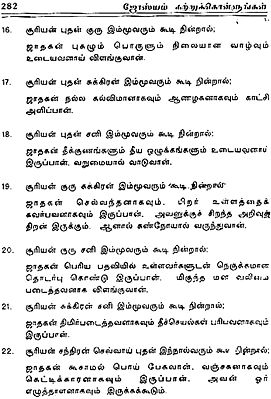 282 ஜோஸ்யம் கற்றுக்கொள்ளுங்கள்
16. சூரியன் புதன் குரு இம்மூவரும் கூடி நின்றால்;
ஜாதகன் புகழும் பொருளும் நிலையான வாழ்வும்
உடையவனாய் விளங்குவான்.
17. சூரியன் புதன் சுக்கிரன் இம்மூவரும் கூடி நின்றால்;
ஜாதகன் நல்ல கல்விமானாகவும் ஆணழகனாகவும் காட்சி
அளிப்பான்.
18. சூரியன் புதன் சனி இம்மூவரும் கூடி நின்றால்;
ஜாதகன் தீக்குணங்களும் தீய ஒழுக்கங்களும் உடையவனாய்
இருப்பான். வறுமையால் வாடுவான்.
19. சூரியன் குரு சுக்கிரன் இம்மூவரும் கூடி நின்றால்
ஜாதகன் செல்வந்தனாகவும், பிறர் உள்ளத்தைக்
கவர்பவனாகவும் இருப்பான். அவனுக்குச் சிறந்த அறிவுத்
திறன் இருக்கும். ஆனால் கண்நோயால் வருந்துவான்.
20. சூரியன் குரு சனி இம்மூவரும் கூடி நின்றால்;
ஜாதகன் பெரிய பதவியில் உள்ளவர்களுடன் நெருக்கமான
தொடர்பு கொண்டு இருப்பான். மிகுந்த மன வலிமை
படைத்தவனாக விளங்குவான்.
21. சூரியன் சுக்கிரன் சனி இம்மூவரும் கூடி நின்றால்;
ஜாதகன் திமிர்படைத்தவனாகவும் தீச்செயல்கள் புரிபவனாகவும்
இருப்பான்.
22. சூரியன் சந்திரன் செவ்வாய் புதன் இந்நால்வரும் கூடி நின்றால்;
ஜாதகன் கூசாமல் பொய் பேசுவான். வஞ்சகனாகவும்
கெட்டிக்காரனாகவும் இருப்பான். அவன் ஓர்
எழுத்தாளனாகவும் இருக்கக்கூடும்.